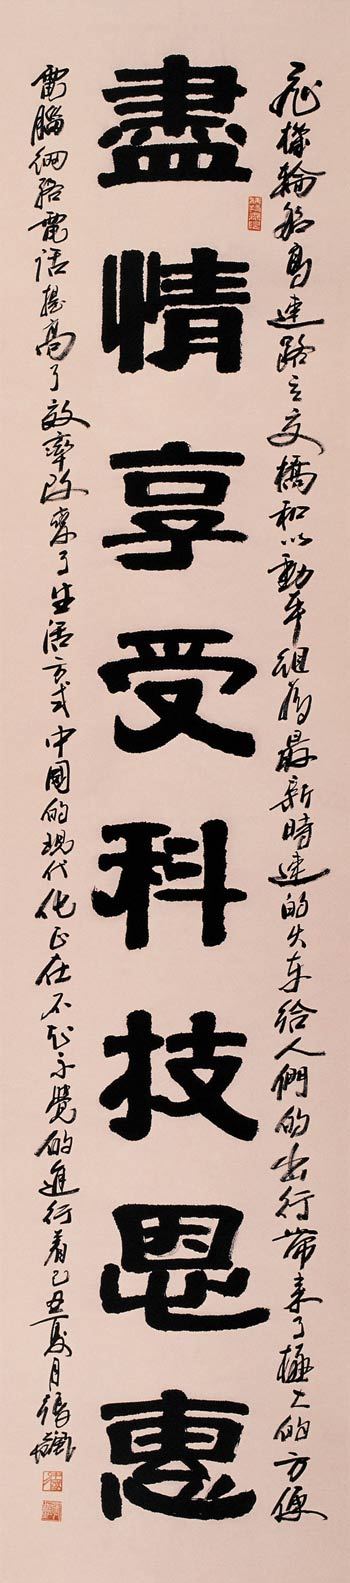 飛機輪船高速路立交橋和以動車組為最新時速的火車給人們的出行帶來了極大的方便
盡情享受科技恩惠
電腦網絡電話提高了效率改變了生活方式中國的現代化正在不知不覺的進行着己丑夏月張